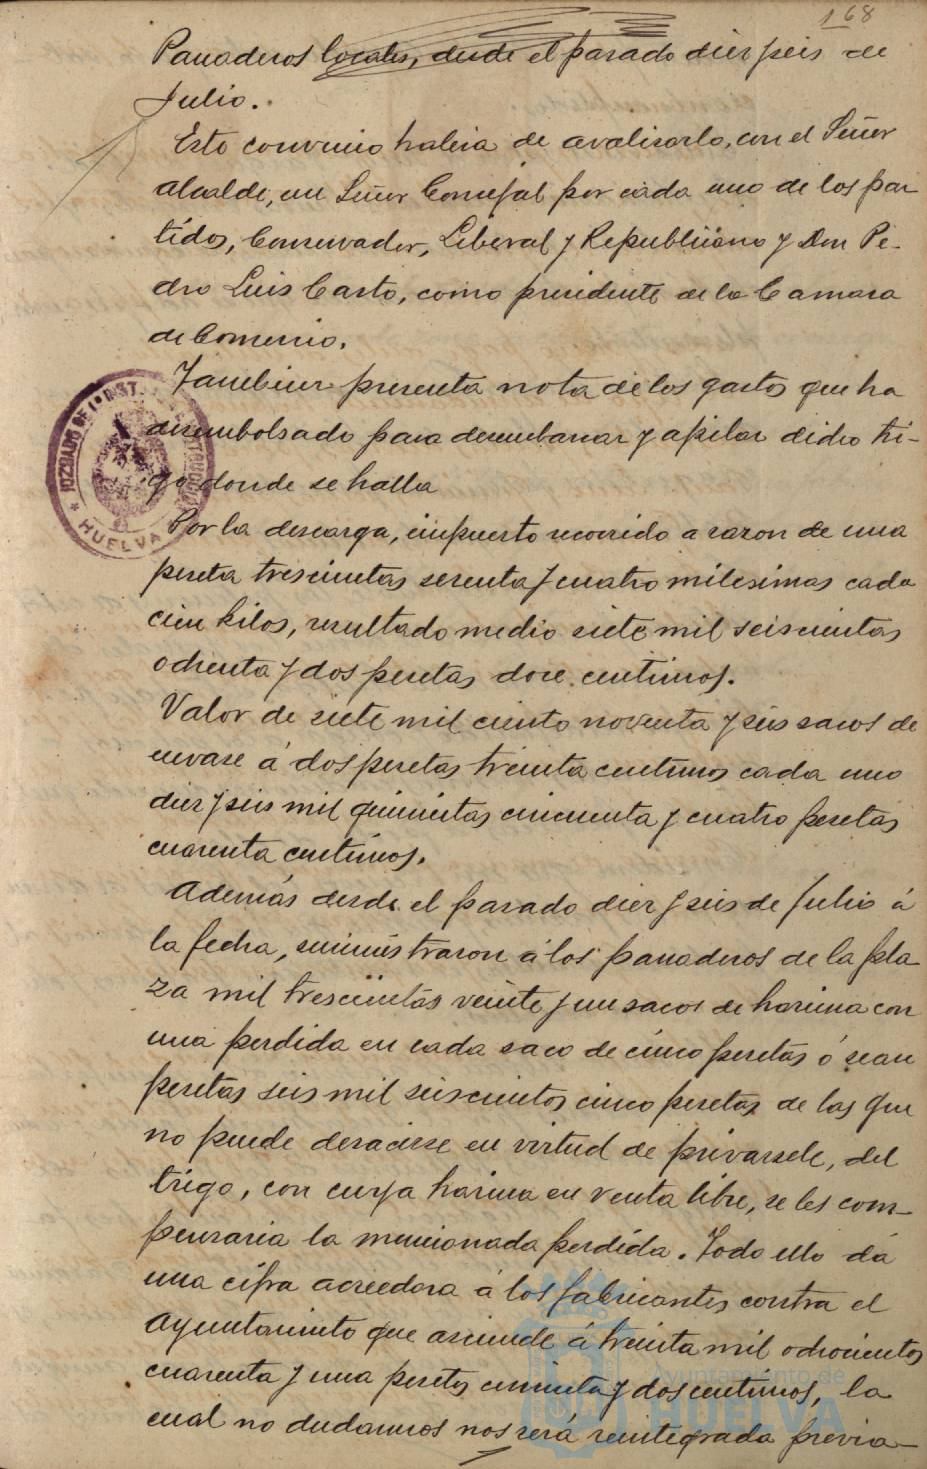 168
Panaderos locales, desde el pasado diez y seis de
Julio.
Este convenio habria de avalisarlo, con el Señor
alcalde, un Señor Concejal por cada uno de los par
tidos, Conservador, Liberal y Republicano y Don Pe-
dro Luis Casto, como presidente de la Camara
de Comercio.
Tambien presenta nota de los gastos que ha
desembolsado para desembarcar y apilar dicho tri-
go donde se halla
Por la descarga, impuesto recorrido a razon de una
peseta trescientas setenta y cuatro milesimas cada
cien kilos, resultado medio siete mil seiscientas
ochenta y dos pesetas doce centimos.
Valor de siete mil ciento noventa y seis sacos de
envase á dos pesetas treinta centimos cada uno
diez y seis mil quinientas cincuenta y cuatro pesetas
cuarenta centimos.
Además desde el pasado diez y seis de Julio á
la fecha, suministraron á los panaderos de la pla
za mil trescientas veinte y un sacos de harina con
una perdida en cada saco de cinco pesetas ó sean
pesetas seis mil seiscientos cinco pesetas de las que
no puede desacirse en virtud de privarsele, del
trigo, con cuya harina en venta libre, se les com-
pensaria la mencionada perdida. Todo ello dá
una cifra acreedora á los fabricantes contra el
Ayuntamiento que asciende á treinta mil ochocientos
cuarenta y una pesetas cincuenta y dos centimos, la
cual no dudamos nos será reintegrada previa-
JUZGADO DE 1ª INST
HUELVA
Ayuntamiento de
HUELVA